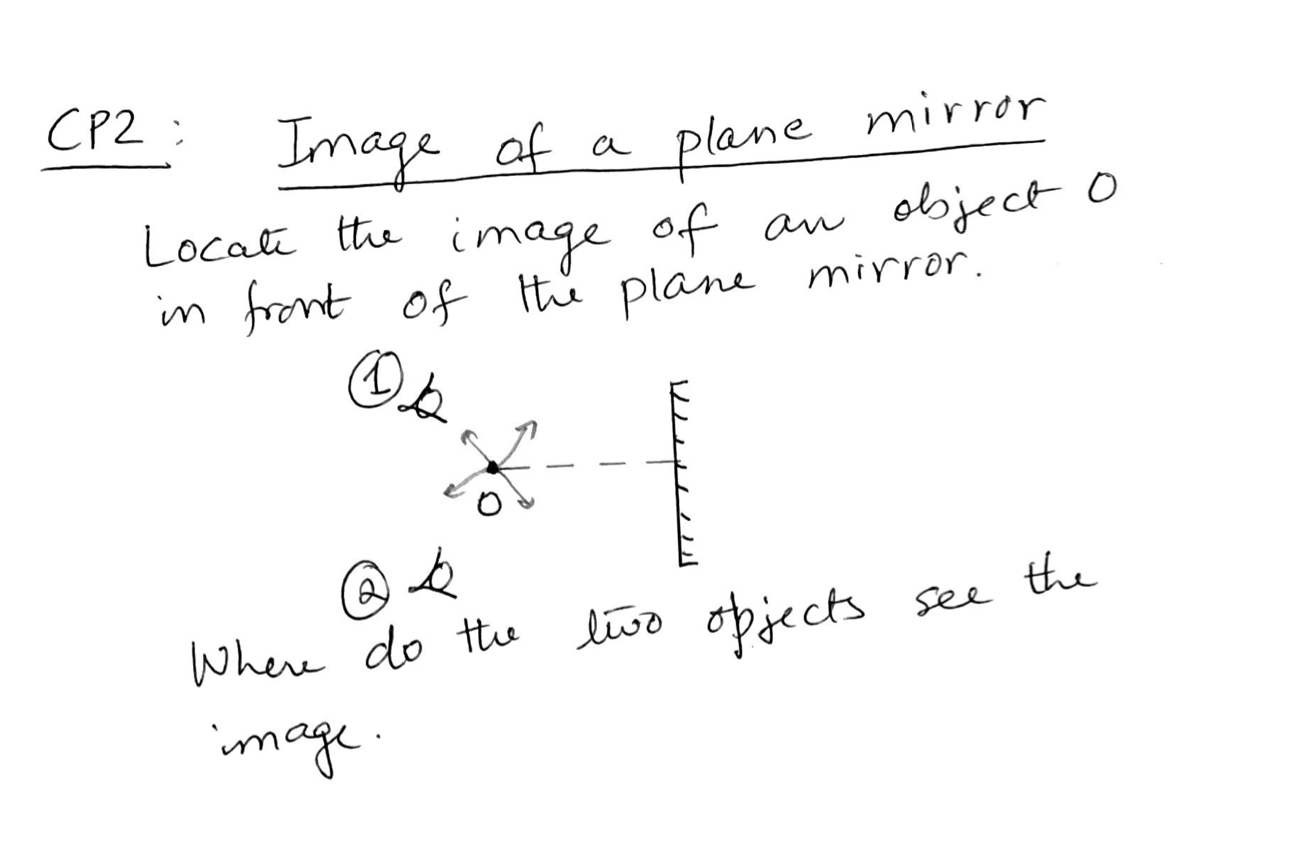 CP2: Image of a plane mirror
Locate the image of an object O
in front of the plane mirror.
①
O
②
Where do the two objects see the
image.